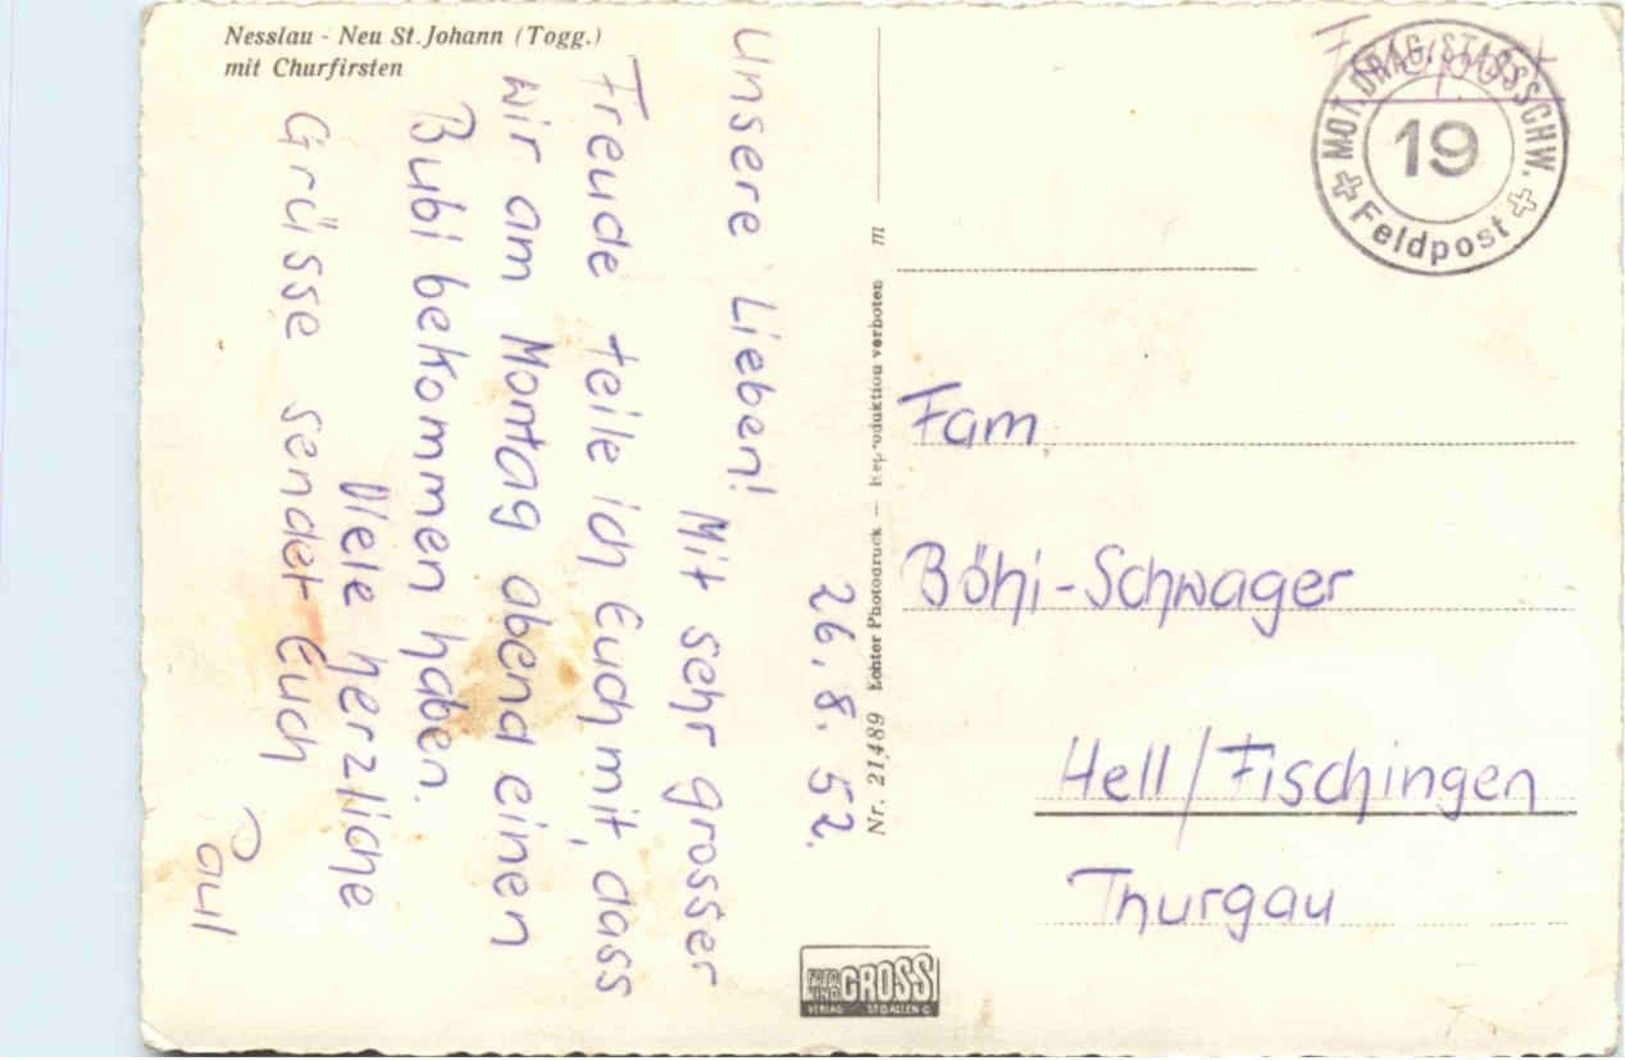 Nesslau - Neu St. Johann (Togg.)
mit Churfirsten
26. 8. 52.
Unsere Lieben!
Mit sehr grosser
Freude teile ich Euch mit, dass
wir am Montag abend einen
Bubi bekommen haben.
Viele herzliche
Grüsse sendet Euch
Paul
Nr. 21489 Lohter Photodruck — Reproduktion verboten m
MOT. DRAG. STABSSCHW.
19
Feldpost
Fam.
Böhi-Schwager
Hell/Fischingen
Thurgau
GROSS
VERLAG ST. GALLEN C